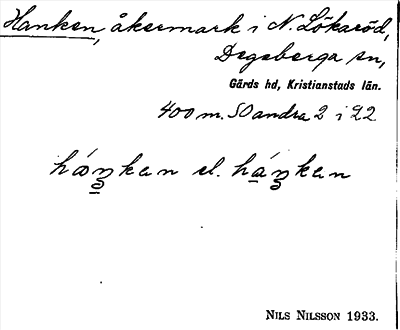 Hanken, åkermark i N. Lökaröd,
Degeberga sn,
Gärds hd, Kristianstads län.
400 m. SO andra 2 i 22
el.
NILS NILSSON 1933.